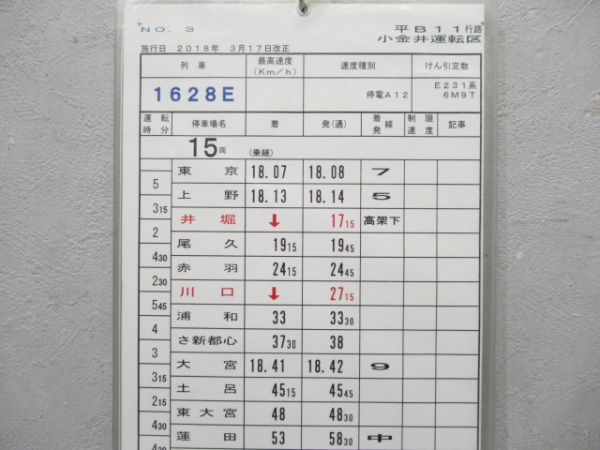 NO. 3
平B11行路
小金井運転区
施行日 2018年 3月17日改正
列車 最高速度(Km/h) 速度種別 けん引定数
1628E 停電A12 E231系 6M9T
運転時分 停車場名 着 発(通) 着発線 制限速度 記事
15両 (乗継)
東京 18.07 18.08 7
5
上野 18.13 18.14 5
315
井堀 ↓ 1715 高架下
2
尾久 1915 1945
430
赤羽 2415 2445
230
川口 ↓ 2715
545
浦和 33 3330
4
さ新都心 3730 38
3
大宮 18.41 18.42 9
315
土呂 4515 4545
215
東大宮 48 4830
430
蓮田 53 5830 中
430